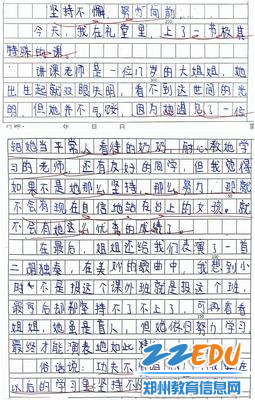 坚持不懈，努力向前
今天，我在礼堂里，上了一节极其
特殊的一课。
讲课老师是一位17岁的大姐姐，她
出生起就双眼失明，看不到这世间的光
明，但她并不气馁，因为她遇见了一位
把她当平常人看待的奶奶，耐心教她学
习的老师，还有友好的同学，但我觉得
如果不是她那么坚持，那么努力，那就
不会有现在自信地站在台上的女孩。就
不会有她这么优秀的成绩了。
在最后，姐姐还给我们表演了一首
二胡独奏，在美妙的歌曲中，我想到小
时不是报这个课外班就是报这个班，
最后却都坚持不了不上了，可再看看
姐姐，她虽是盲人，但她依旧努力学习
最终才能演表地如此精
俗话说：功夫不
以后的学习里坚持不
ZZEDU
郑州教育信息网